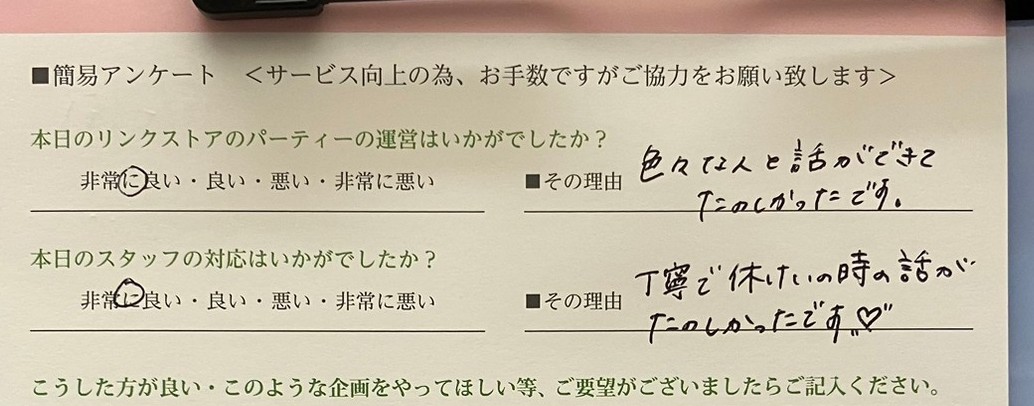 ■簡易アンケート　＜サービス向上の為、お手数ですがご協力をお願い致します＞
本日のリンクストアのパーティーの運営はいかがでしたか？
非常に良い・良い・悪い・非常に悪い　■その理由　色々な人と話ができて
たのしかったです。
本日のスタッフの対応はいかがでしたか？
非常に良い・良い・悪い・非常に悪い　■その理由　丁寧で休けいの時の話が
たのしかったです♡
こうした方が良い・このような企画をやってほしい等、ご要望がございましたらご記入ください。